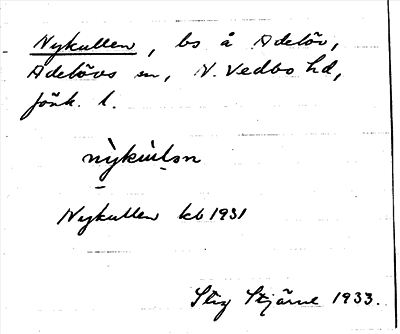 Nykullen, bs å Adelöv,
Adelövs sn, N. Vedbo hd,
Jönk. l.
nỳkúlən
Nykullen kb 1931
Stig Stjärne 1933.